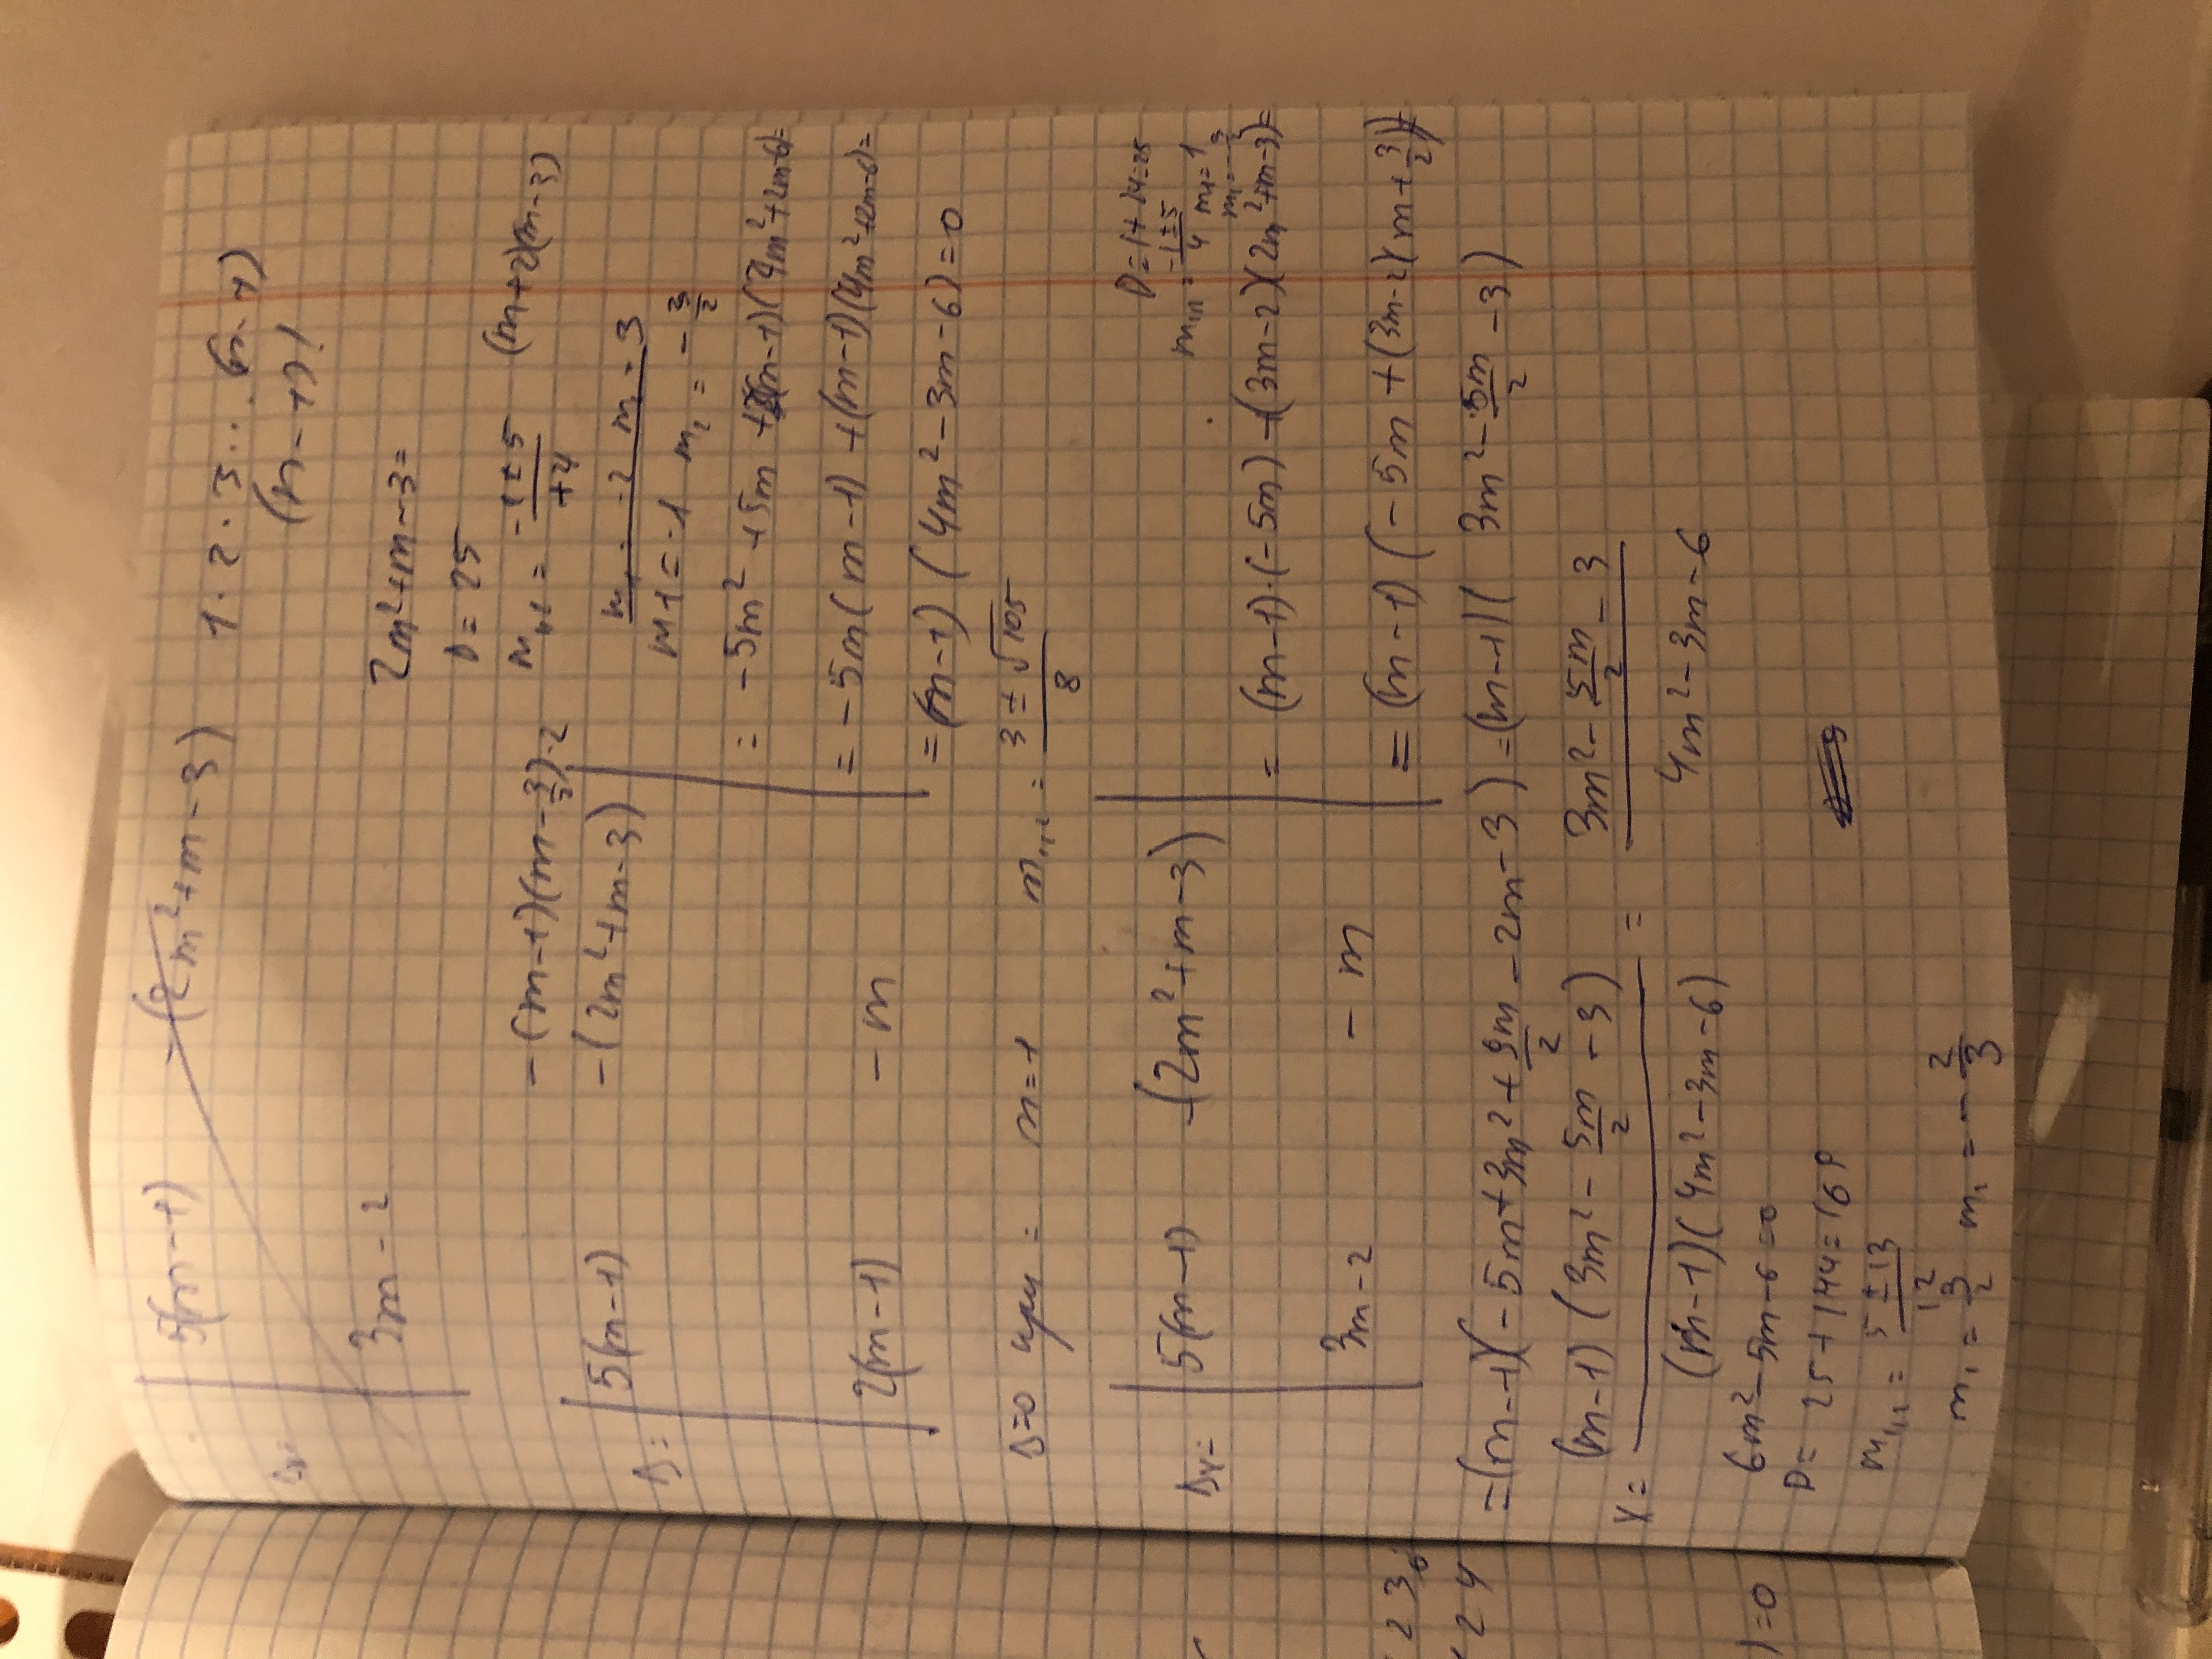 5(m-1) -(2m²+m-3) 1·2·3... (n-1)
(n-1)!
Δx=
3m-2
2m²+m-3=
D=25
m₁,₂ = (-1±5)/+4 (m+2)(m-3)
-(m-1)(m-3/2)·2
Δ= | 5(m-1) -(2m²+m-3) |
m₁=-2 m₁=3
m1=-1 m₂=-3/2
= -5m²+5m+(m-1)(4m²+2m-6)=
2(m-1) -m
= -5m(m-1)+(m-1)(4m²+2m-6)=
=(m-1)(4m²-3m-6)=0
Δ=0 при = m=1 m₁,₂ = (3±√105)/8
D=1+24=25
m₁,₂ = (-1±5)/4 m₁=1
m₁=-3/2
Δx= | 5(m-1) -(2m²+m-3) |
= (m-1)·(-5m)+(3m-2)(2m²+m-3)=
3m-2 -m
= (m-1)(-5m+(3m-2)(m+3/2))=
=(m-1)(-5m+3m²+9m/2-2m-3)=(m-1)(3m²-5m/2-3)
X= (m-1)(3m²-5m/2-3)/(m-1)(4m²-3m-6) = (3m²-5m/2-3)/(4m²-3m-6)
6m²-5m-6=0
D= 25+144=169
m₁,₂ = (5±13)/12
m₁=3/2 m₂=-2/3
2 3
2 4
)=0